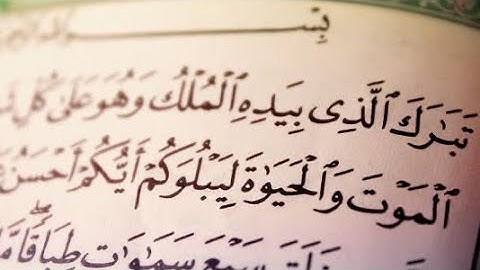 بِسْمِ
تَبَٰرَكَ ٱلَّذِى بِيَدِهِ ٱلْمُلْكُ وَهُوَ عَلَىٰ كُلِّ
ٱلْمَوْتَ وَٱلْحَيَوٰةَ لِيَبْلُوَكُمْ أَيُّكُمْ أَحْسَنُ
خَلَقَ سَبْعَ سَمَٰوَٰتٍ طِبَاقًا